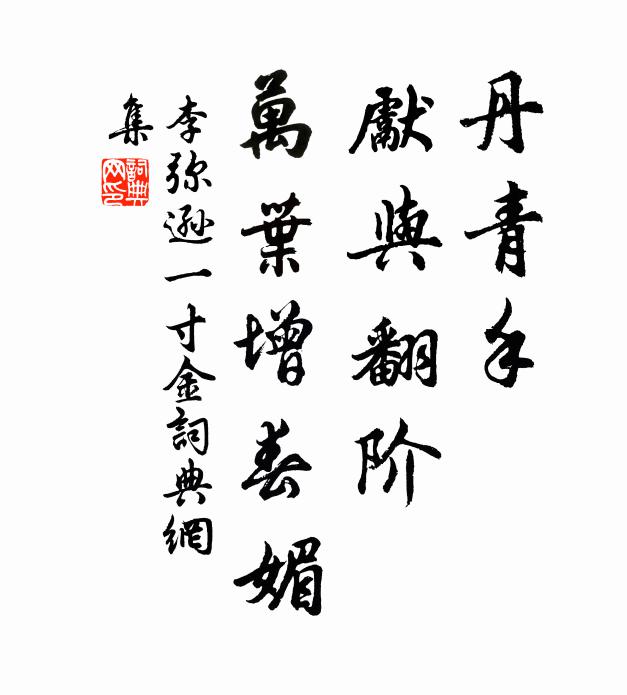 丹青手
獻與翻阶
萬葉增春媚
李弥遜一寸金詞典網
集
詞典
网印